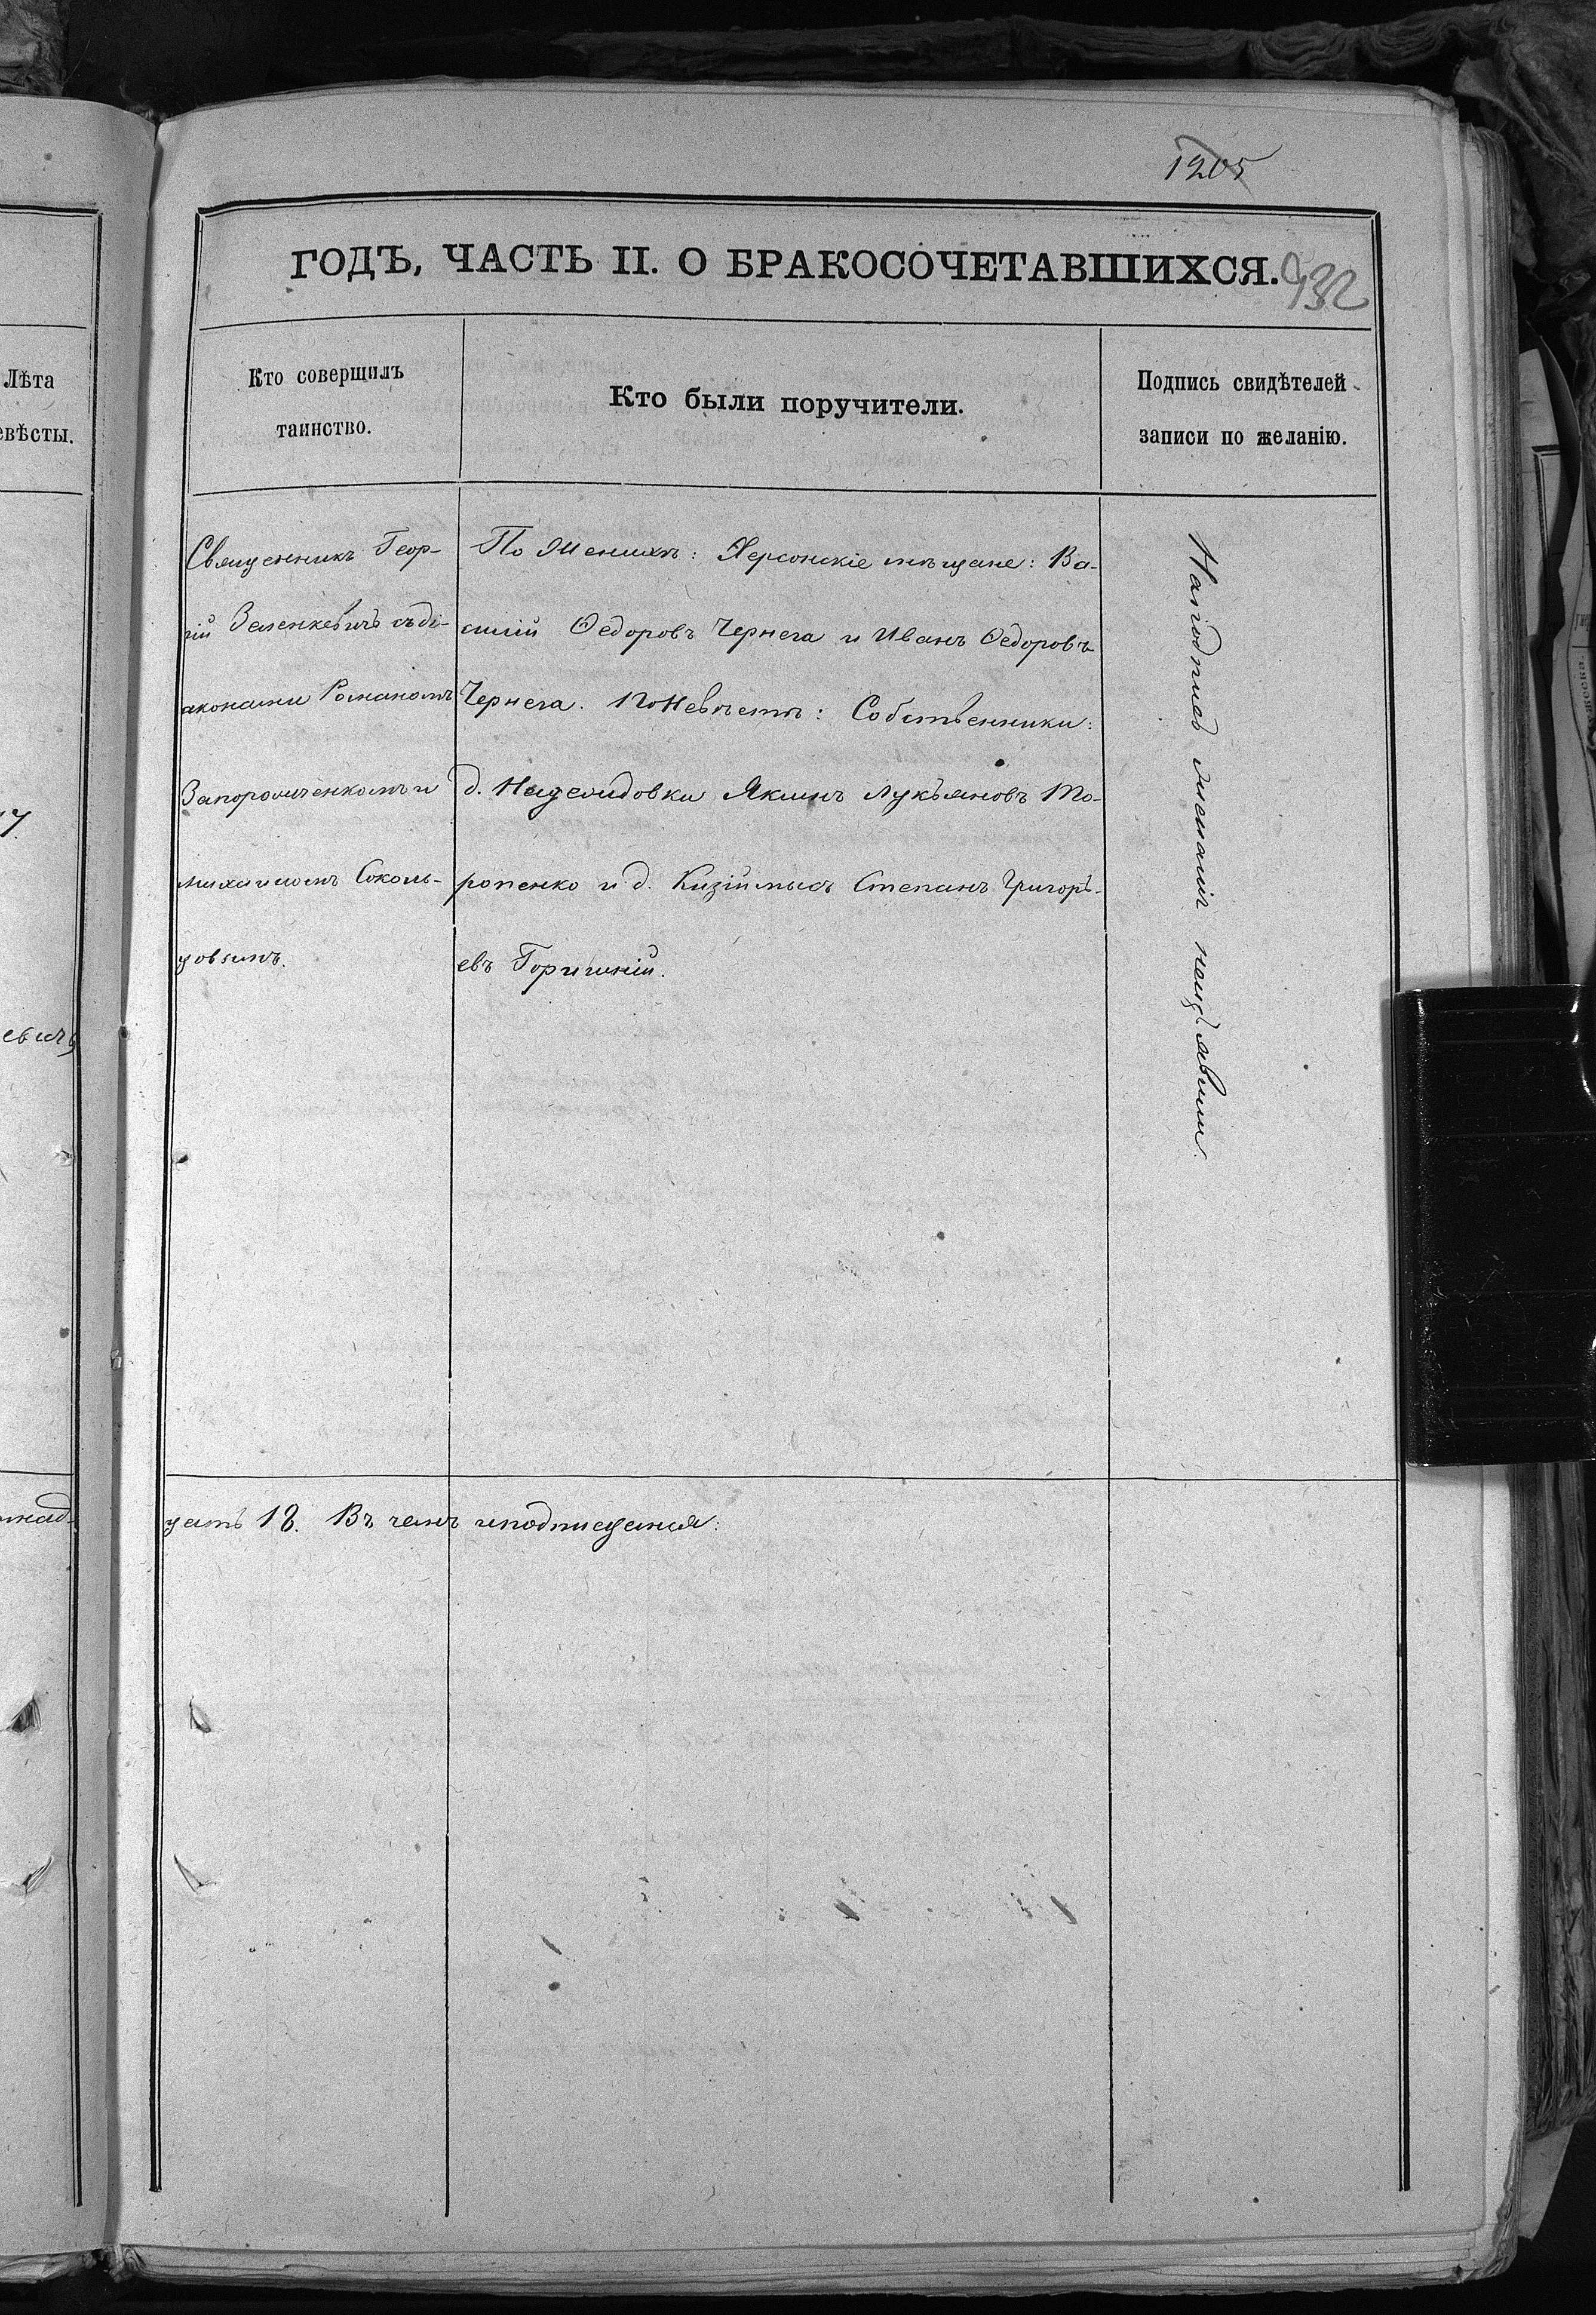 1205
ГОДЪ, ЧАСТЬ II. О БРАКОСОЧЕТАВШИХСЯ.
932
Лѣта
евѣсты.
Кто совершилъ
таинство.
Кто были поручители.
Подпись свидѣтелей
записи по желанію.
Священникъ Геор-
гій Зеленкевичъ съ ді-
аконами Романомъ
Запорожченкомъ и
Михаиломъ Соколь-
цовымъ.
По Женихѣ: Херсонскіе мѣщане: Ва-
силій Ѳедоровъ Чернега и Иванъ Ѳедоровъ
Чернега. По Невѣстѣ: Собственники:
д. Якимъ Лукьяновъ То-
ропенко и д. Кизіймысъ Степанъ Григорь-
евъ Горишній.
На подпись желанія неизъявили.
евичъ
надцать 18. Въ чемъ и подписуемся: